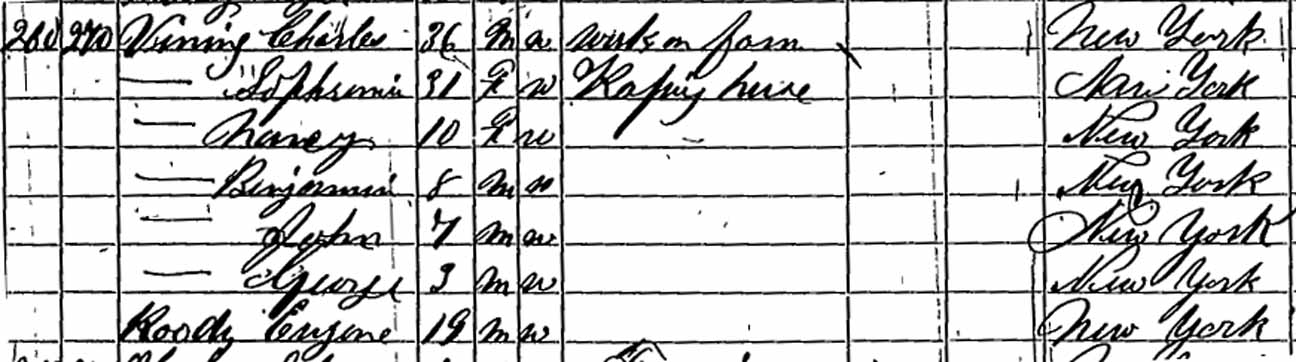 260 270 Vining Charles 36 M W works on farm New York
— Sophronia 31 F W Keeping house New York
— Nancy 10 F W New York
— Benjamin 8 M W New York
— John 7 M W New York
— George 3 M W New York
Eugene 19 M W New York